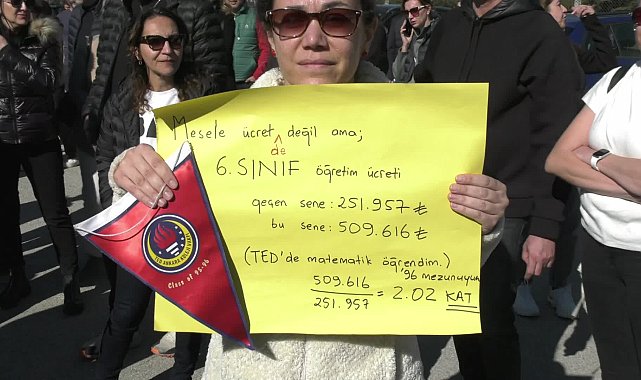 Mesele ücret de değil ama;
6. SINIF öğretim ücreti
geçen sene: 251.957 ₺
bu sene: 509.616 ₺
(TED'de matematik öğrendim.)
'96 mezunuyum
509.616
251.957
= 2.02 KAT
TED ANKARA KOLEJİ
Class of 95-96